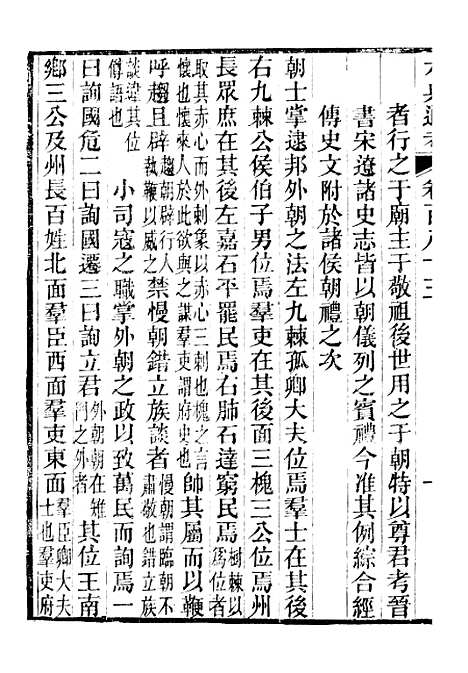 者行之于廟主于敬祖後世用之于朝特以尊君考晉
書宋遼諸史志皆以朝儀列之賓禮今准其例綜合經
傳史文附於諸侯朝禮之次
朝士掌建邦外朝之法左九棘孤卿大夫位焉羣士在其後
右九棘公侯伯子男位焉羣吏在其後面三槐三公位焉州
長眾庶在其後左嘉石平罷民焉右肺石達窮民焉樹棘以爲位者
取其赤心而外刺象以赤心三刺也槐之言懷也懷來人於此欲與之謀羣吏謂府史也帥其屬而以鞭
呼趨且辟趨朝辟行人執鞭以威之禁慢朝錯立族談者慢朝謂臨朝不肅敬也錯立族
談違其位僔語也小司寇之職掌外朝之政以致萬民而詢焉一
曰詢國危二曰詢國遷三曰詢立君外朝朝在雉門之外者其位王南
鄉三公及州長百姓北面羣臣西面羣吏東面羣臣卿大夫士也羣吏府